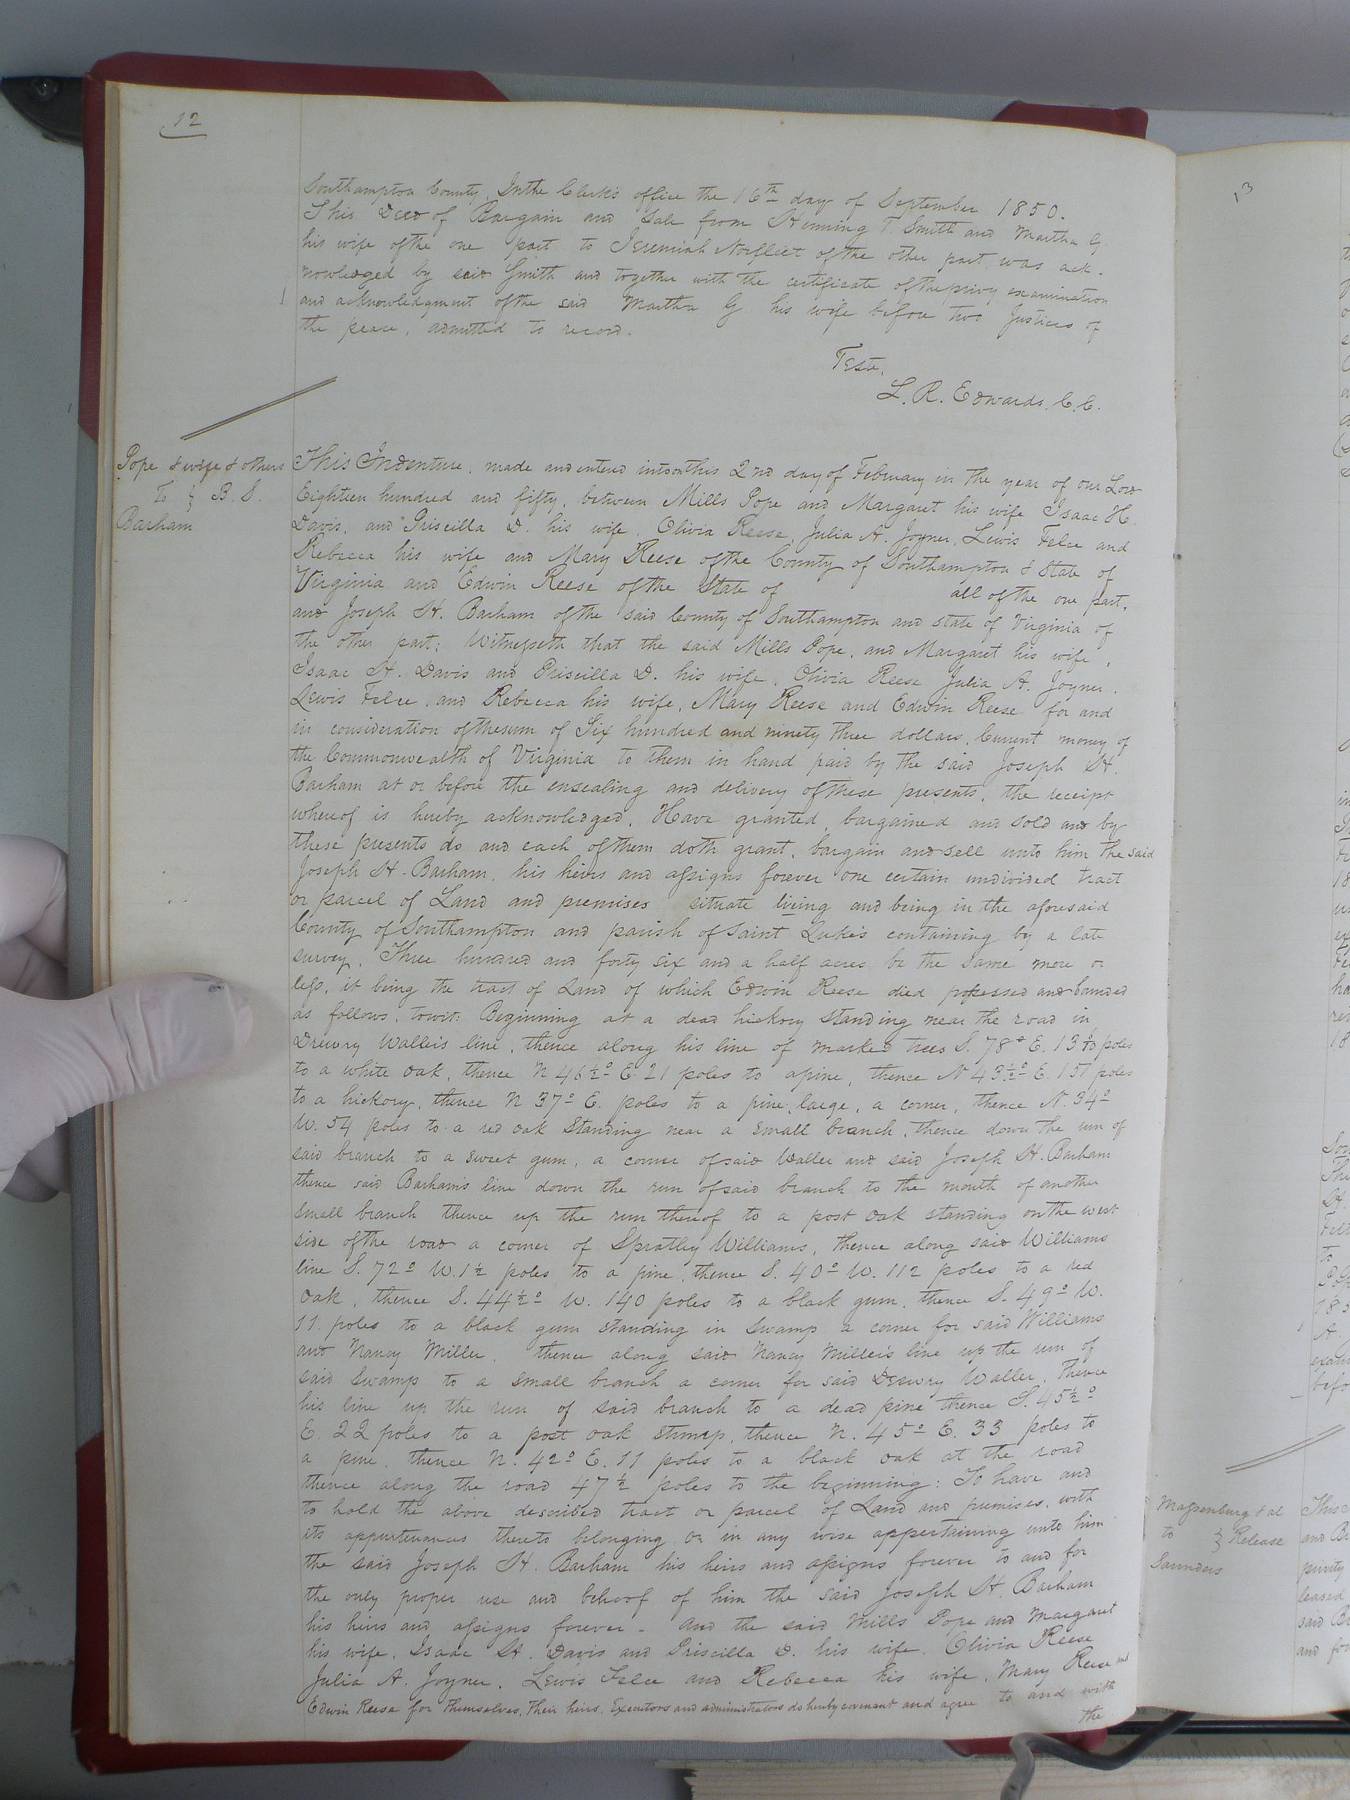 12
Southampton County, In the Clerk's office the 16th day of September 1850.
This Deed of Bargain and Sale from Henning T. Smith and Martha G.
his wife of the one part to Jeremiah Norfleet of the other part was ack-
nowledged by said Smith and together with the certificate of the privy examination
and acknowledgment of the said Martha G his wife before two Justices of
the peace, admitted to record.
Teste,
L. R. Edwards, C. C.
Pope & wife & others
To } B. S.
Barham
This Indenture, made and entered into on this 2nd day of February in the year of our Lord
Eighteen hundred and fifty, between Mills Pope and Margaret his wife Isaac H.
Davis, and Priscilla D. his wife, Olivia Reese, Julia A. Joyner, Lewis Felce and
Rebecca his wife and Mary Reese of the County of Southampton & State of
Virginia and Edwin Reese of the State of all of the one part,
and Joseph H. Barham of the said County of Southampton and state of Virginia of
the other part; Witnesseth that the said Mills Pope, and Margaret his wife,
Isaac H. Davis and Priscilla D. his wife, Olivia Reese Julia A. Joyner,
Lewis Felce, and Rebecca his wife, Mary Reese and Edwin Reese for and
in consideration of the sum of Six hundred and ninety three dollars, Current money of
the Commonwealth of Virginia to them in hand paid by the said Joseph H.
Barham at or before the ensealing and delivery of these presents, the receipt
whereof is hereby acknowledged, Have granted, bargained and sold and by
these presents do and each of them doth grant, bargain and sell unto him the said
Joseph H. Barham, his heirs and assigns forever one certain undivided tract
or parcel of Land and premises situate living and being in the aforesaid
County of Southampton and parish of Saint Luke's containing by a late
survey, Three hundred and forty six and a half acres be the same more or
less, it being the tract of Land of which Edwin Reese died possessed and bounded
as follows, towit: Beginning at a dead hickory standing near the road in
Drewry Waller's line, thence along his line of marked trees S. 78° E. 13 poles
to a white oak, thence N 46½° E 21 poles to a pine, thence N 43½° E. 151 poles
to a hickory, thence N 37° E. poles to a pine, large, a corner, thence N. 34°
W. 54 poles to a red oak standing near a small branch, thence down the run of
said branch to a sweet gum, a corner of said Waller and said Joseph H. Barham
thence said Barham's line down the run of said branch to the mouth of another
small branch thence up the run thereof to a post oak standing on the west
side of the road a corner of Spratley Williams, thence along said Williams
line S. 72° W. 1½ poles to a pine, thence S. 40° W. 112 poles to a red
oak, thence S. 44½° W. 140 poles to a black gum, thence S. 49° W.
11 poles to a black gum standing in swamp a corner for said Williams
and Nancy Miller, thence along said Nancy Miller's line up the run of
said swamp to a small branch a corner for said Drewry Waller, thence
his line up the run of said branch to a dead pine thence S. 45½°
E. 22 poles to a post oak stump, thence N. 45° E. 33 poles to
a pine, thence N. 42° E. 11 poles to a black oak at the road
thence along the road 47½ poles to the beginning: To have and
to hold the above described tract or parcel of Land and premises, with
its appurtenances thereto belonging or in any wise appertaining unto him
the said Joseph H. Barham his heirs and assigns forever to and for
the only proper use and behoof of him the said Joseph H. Barham
his heirs and assigns forever - And the said Mills Pope and Margaret
his wife, Isaac H. Davis and Priscilla D. his wife, Olivia Reese
Julia A. Joyner, Lewis Felce and Rebecca his wife, Mary Reese and
Edwin Reese for themselves, their heirs, Executors and administrators do hereby covenant and agree to and with
the
13
Massenburg & al
to } Release
Saunders